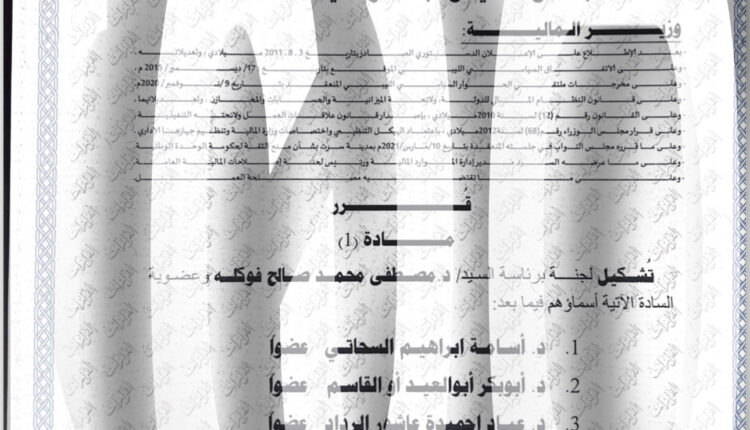 وزيـــر المـاليـــة:
بـعـــد الإطـــلاع عـلـــى الإعـــلان الدستوري الصـــادر بتاريخ 3 . 8 . 2011 ميـلادي ، وتعديلاتـــه .
وعلـــى الاتفـــاق السياسـي الليبـي الموقع بتاريخ 17/ ديسمبـــر/ 2015 م .
وعلـى مخرجـات ملتقـى الحـــوار السياسـي الليبـي المنعقـد بتـاريخ 9/ نـوفمبر/ 2020م
وعلـى قـانون النظـام المـالي للدولـة، ولائحـة الميزانيـة والحسـابات والمخـازن وتعديلاتهما.
وعلـى القانون رقـم (12) لسنـة 2010 ميـلادي ، بإصدار قـانون علاقـات العمـل ولائحتـه التنفيذيـة
وعلى قـرار مجلـس الوزراء رقـم (68) لسنة 2012 ميلادي ، باعتمـاد الهيكل التنظيمي واختصاصـات وزارة المالية وتنظيم جهازهـا الإداري .
وعلى مـا قـرره مجلس النواب فـي جلسته المنعقدة بتاريخ 10/مارس/2021م بمدينة سـرت بشـأن منح الثقة لحكومة الوحدة الوطنية
وعلـــى مـــا عرضـــه السيـــد مديـر إدارة المـوارد الماليـة ورئيس لجنـة الإصلاحات الماليـة
وعلـــى مـــا تقتضيـــه مصلحـة العمـــل
قُـــــرر
مـــــادة (1)
تُشكيل لجنـة برئاسة السيد/ د. مصـطفى محمـد صـالح فوكله وعضوية
السادة الآتية أسماؤهم فيما بعد:
1. د. أسـامة ابراهيـم السحاتي عضوا
2. د. أبوبكر أبوالعيد أو القاسم عضوا
3. د. عمـاد احميدة عاشور الرداد عضوا